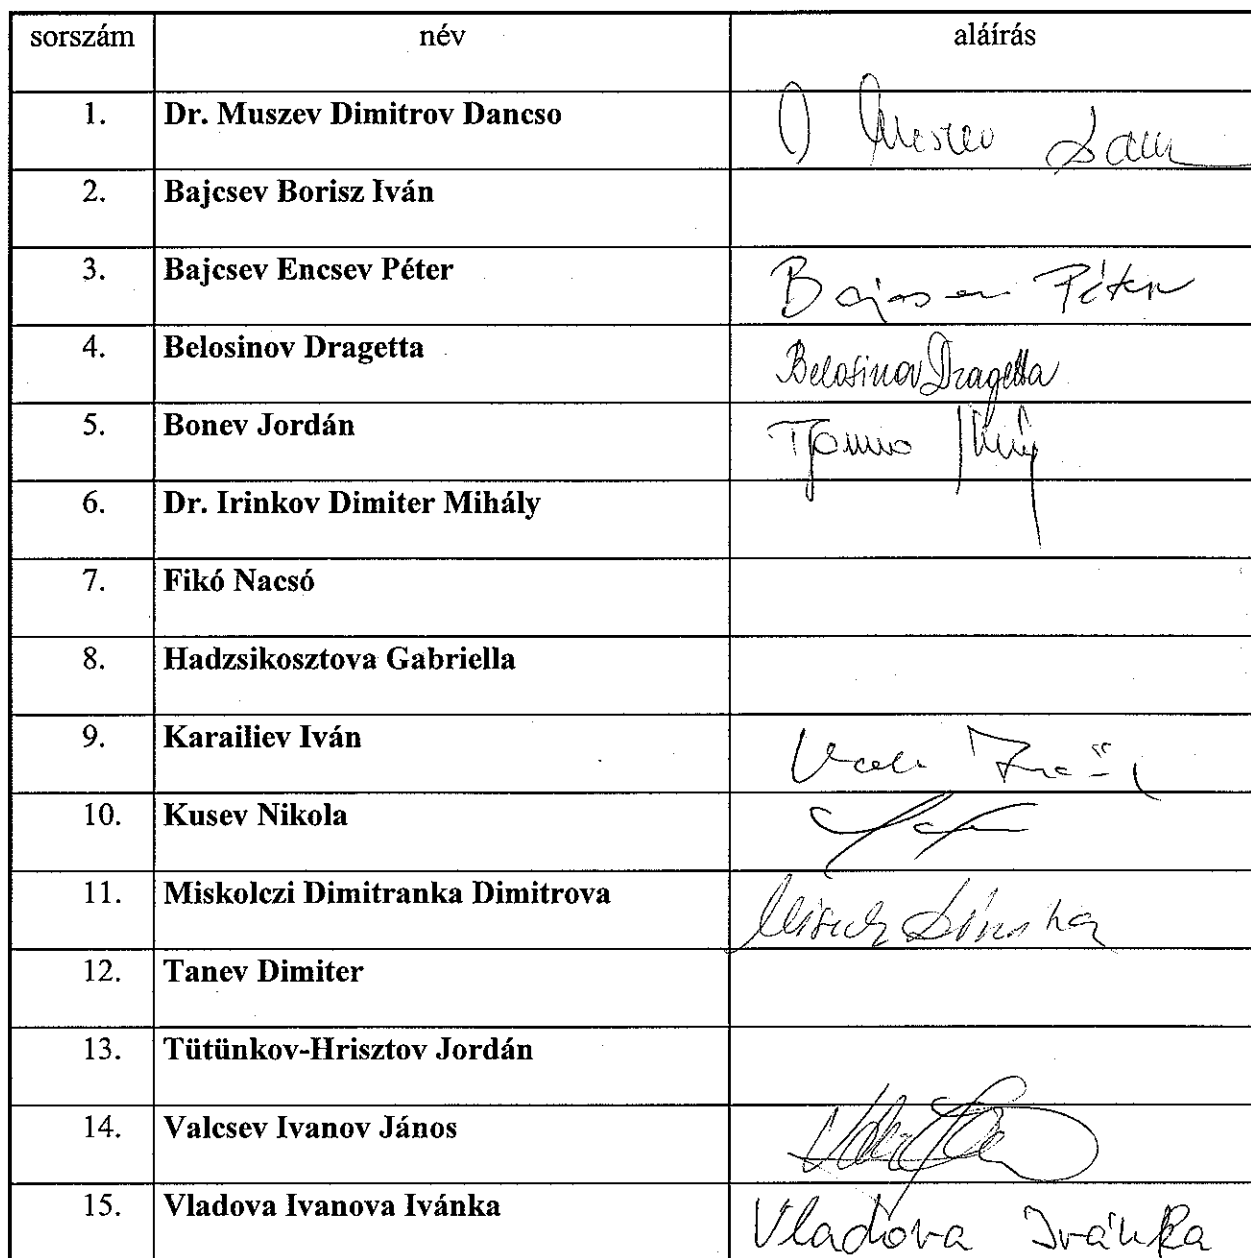 sorszám név aláírás
1. Dr. Muszev Dimitrov Dancso
2. Bajcsev Borisz Iván
3. Bajcsev Encsev Péter Péter
4. Belosinov Dragetta Belosinov Dragetta
5. Bonev Jordán
6. Dr. Irinkov Dimiter Mihály
7. Fikó Nacsó
8. Hadzsikosztova Gabriella
9. Karailiev Iván
10. Kusev Nikola
11. Miskolczi Dimitranka Dimitrova
12. Tanev Dimiter
13. Tütünkov-Hrisztov Jordán
14. Valcsev Ivanov János
15. Vladova Ivanova Ivánka Vladova Ivánka